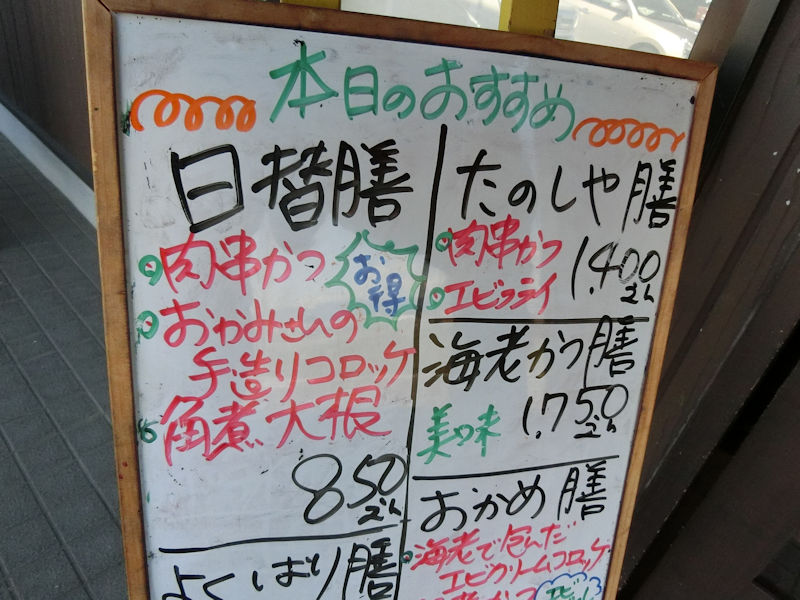 本日のおすすめ
日替膳
肉串かつ
お得
おかみさんの
手造りコロッケ
角煮大根
850
よくばり膳
たのしや膳
肉串かつ
エビフライ
1,400
海老かつ膳
美味
1,750
おかめ膳
海老で包んだ
エビクリームコロッケ